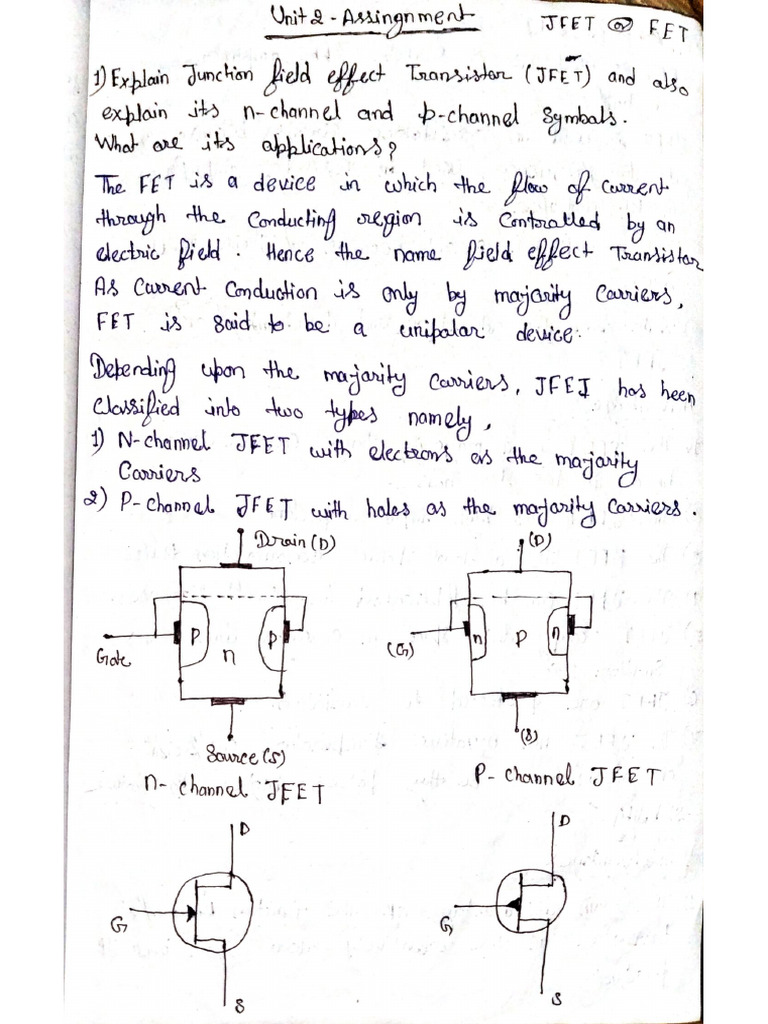 Unit 2 - Assingnment
JFET or FET
1) Explain Junction field effect Transistor (JFET) and also
explain its n-channel and p-channel symbols.
What are its applications?
The FET is a device in which the flow of current
through the conducting region is controlled by an
electric field. Hence the name field effect Transistor
As current conduction is only by majority carriers,
FET is said to be a unipolar device.
Depending upon the majority carriers, JFET has been
classified into two types namely,
1) N-channel JFET with electrons as the majority
carriers
2) P-channel JFET with holes as the majority carriers.
Drain (D)
(D)
P
n
P
n
P
n
Gate
(G)
Source (S)
(S)
n- channel JFET
P- channel JFET
D
D
G
G
S
S